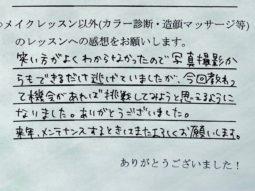 ○メイクレッスン以外(カラー診断・造顔マッサージ等)
のレッスンへの感想をお願いします。
笑い方がよくわからなかったので写真撮影か
らもできるだけ逃げていましたが、今回教わ
って機会があれば挑戦してみようと思えるように
なりました。ありがとうございました。
来年、メンテナンスするときはまたよろしくお願いします。
ありがとうございました!